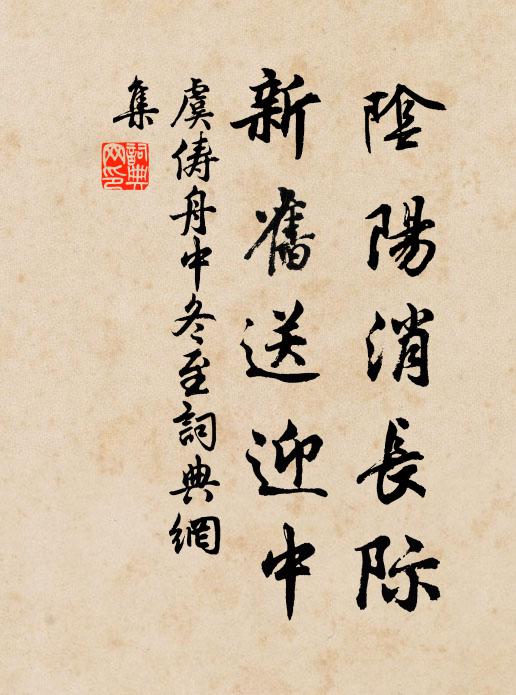 陰陽消長际
新舊送迎中
虞俦舟中冬至詞典網
集
詞典
网印